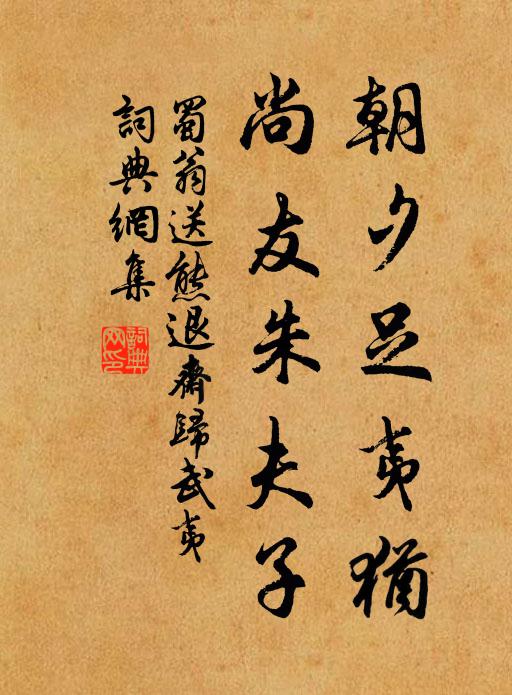 朝夕足夷猶
尚友朱夫子
蜀翁送熊退齋歸武夷
詞典網集
詞典網印